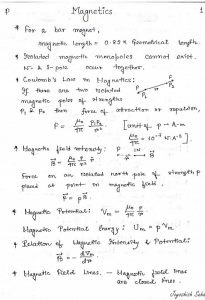 P Magnetics 1
* For a bar magnet,
magnetic length = 0.85 x Geometrical length.
* Isolated magnetic monopoles cannot exist.
N- & S-pole occur together.
* Coulomb's Law in Magnetics:
If there are two isolated
magnetic poles of strengths
P₁ & P₂ then force of attraction or repulsion,
F = μ₀/4π P₁P₂/r² [unit of p → A-m
μ₀/4π = 10⁻⁷ N-A⁻²]
* Magnetic field intensity:
B = μ₀/4π p/r²
Force on an isolated north pole of strength p
placed at point in magnetic field,
F = pB
* Magnetic Potential: Vm = μ₀/4π p/r
Magnetic Potential Energy: Um = p Vm
* Relation of Magnetic Intensity & Potential:
B = - dVm/dr
* Magnetic Field Lines – Magnetic field lines
are closed lines.
Jyotshish Saha